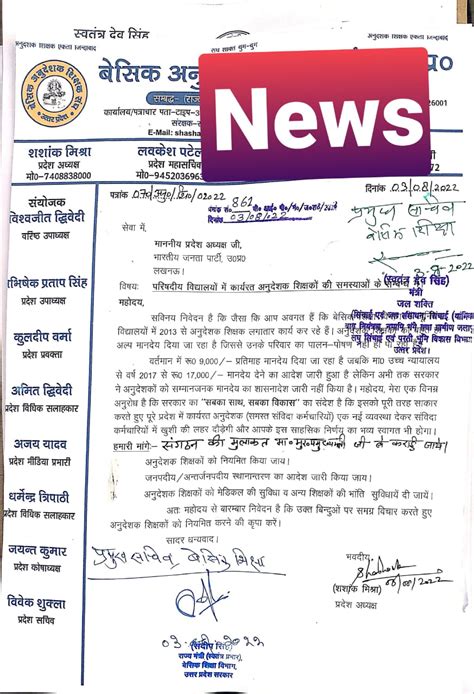 स्वतंत्र देव सिंह
अनुदेशक शिक्षक एकता जिन्दाबाद
बेसिक अनुदेशक शिक्षक संघ
उत्तर प्रदेश
बेसिक अनु
प्र०
News
कार्यालय/पत्राचार पता-टाइप-
26001
संरक्षक-
E-Mail: shasha
शशांक मिश्रा
प्रदेश अध्यक्ष
मो०-7408838000
लवकेश पटेल
प्रदेश महासचिव
मो०-945203696
पत्रांक
2022
861
03/08/2022
दिनांक 03/08/2022
प्रमुख सचिव
बेसिक शिक्षा
3-8-2022
(स्वतंत्र देव सिंह)
मंत्री
जल शक्ति
उत्तर प्रदेश।
संयोजक
विश्वजीत द्विवेदी
वरिष्ठ उपाध्यक्ष
अभिषेक प्रताप सिंह
प्रदेश उपाध्यक्ष
कुलदीप वर्मा
प्रदेश प्रवक्ता
अमित द्विवेदी
प्रदेश विधिक सलाहकार
अजय यादव
प्रदेश मीडिया प्रभारी
धर्मेन्द्र त्रिपाठी
प्रदेश विधिक सलाहकार
जयन्त कुमार
प्रदेश कोषाध्यक्ष
विवेक शुक्ला
प्रदेश सचिव
सेवा में,
माननीय प्रदेश अध्यक्ष जी,
भारतीय जनता पार्टी, उ०प्र०
लखनऊ।
विषयः परिषदीय विद्यालयों में कार्यरत अनुदेशक शिक्षकों की समस्याओं के
महोदय,
सविनय निवेदन है कि जैसा कि आप अवगत हैं कि बेसिक
विद्यालयों में 2013 से अनुदेशक शिक्षक लगातार कार्य कर रहे हैं। अनुदेशक शिक्षकों
अल्प मानदेय दिया जा रहा है जिससे उनके परिवार का पालन-पोषण नहीं हो पा रहा
वर्तमान में रू0 9,000/- प्रतिमाह मानदेय दिया जा रहा है जबकि मा0 उच्च न्यायालय
से वर्ष 2017 से रू0 17,000/- मानदेय देने का आदेश जारी हुआ है लेकिन अभी तक सरकार
ने अनुदेशकों को सम्मानजनक मानदेय का शासनादेश जारी नहीं किया है। महोदय, मेरा एक विनम्र
अनुरोध है कि सरकार का "सबका साथ, सबका विकास" का संदेश है कि इसको पूरी तरह साकार
करते हुए पूरे प्रदेश में कार्यरत अनुदेशक (समस्त संविदा कर्मचारियों) एक नई व्यवस्था देकर संविदा
कर्मचारियों में खुशी की लहर दौडेगी और आपके इस साहसिक निर्णय का भव्य स्वागत भी होगा।
हमारी मांगे:- संगठन की मुलाकात मा० मुख्यमंत्री जी से कराई जाये।
अनुदेशक शिक्षकों को नियमित किया जाय।
जनपदीय/अन्तर्जनपदीय स्थानान्तरण का आदेश जारी किया जाय।
अनुदेशक शिक्षकों को मेडिकल की सुविधा व अन्य शिक्षकों की भांति सुविधायें दी जायें।
अतः महोदय से बारम्बार निवेदन है कि उक्त बिन्दुओं पर समग्र विचार करते हुए
अनुदेशक शिक्षकों को नियमित करने की कृपा करें।
सादर धन्यवाद।
प्रमुख सचिव, बेसिक शिक्षा
भवदीय
03/08/2022
(शशांक मिश्रा)
प्रदेश अध्यक्ष
2022
(संदीप सिंह)
राज्य मंत्री (स्वतंत्र प्रभार),
बेसिक शिक्षा विभाग,
उत्तर प्रदेश सरकार